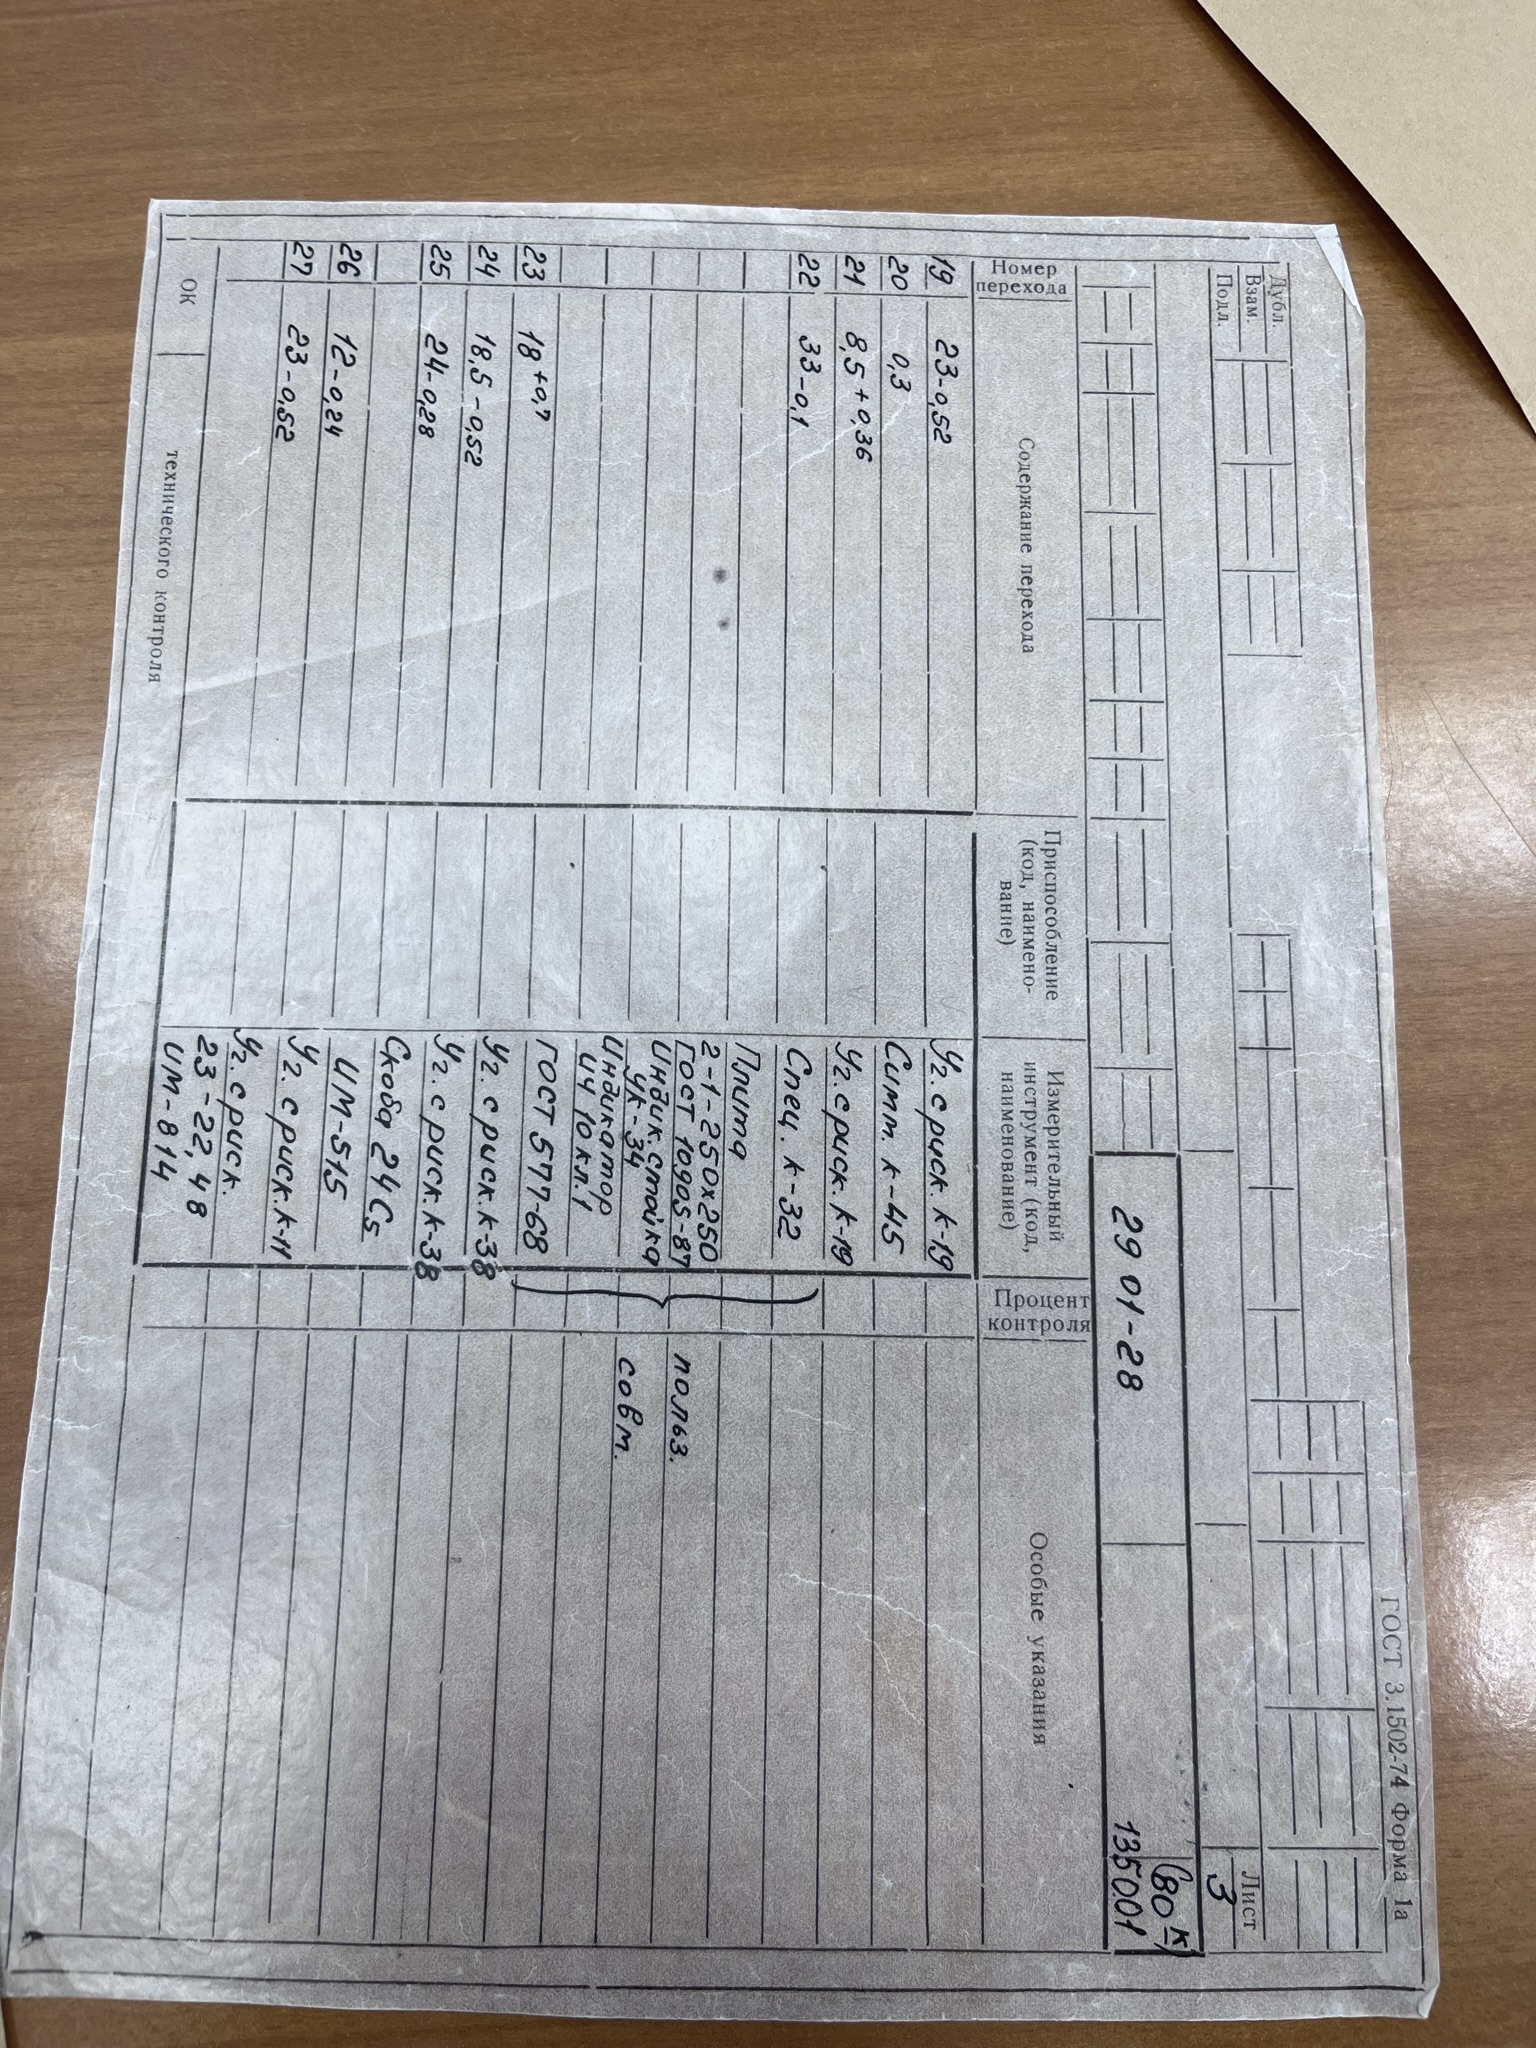 ГОСТ 3.1502-74 Форма 1а
Дубл.
Взам.
Подл.
Лист
3
29 01-28
(80 к)
135001
Номер перехода
Содержание перехода
Приспособление
(код, наимено-
вание)
Измерительный
инструмент (код,
наименование)
Процент контроля
Особые указания
19 23-0,52 Уг. с риск. К-19
20 0,3 Симм. К-45
21 8,5 +0,36 Уг. с риск. К-19
22 33-0,1 Спец. К-32
Плита
2-1-250х250
ГОСТ 10905-87 польз.
Индик. стойка
УК-34 совм.
Индикатор
ИЧ 10 кл.1
23 18 +0,7 ГОСТ 577-68
24 18,5 -0,52 Уг. с риск. К-38
25 24-0,28 Уг. с риск. К-38
Скоба 24 С5
26 12-0,24 ИМ-515
27 23-0,52 Уг. с риск. К-11
Уг. с риск.
23-22,48
ИМ-814
ОК
технического контроля